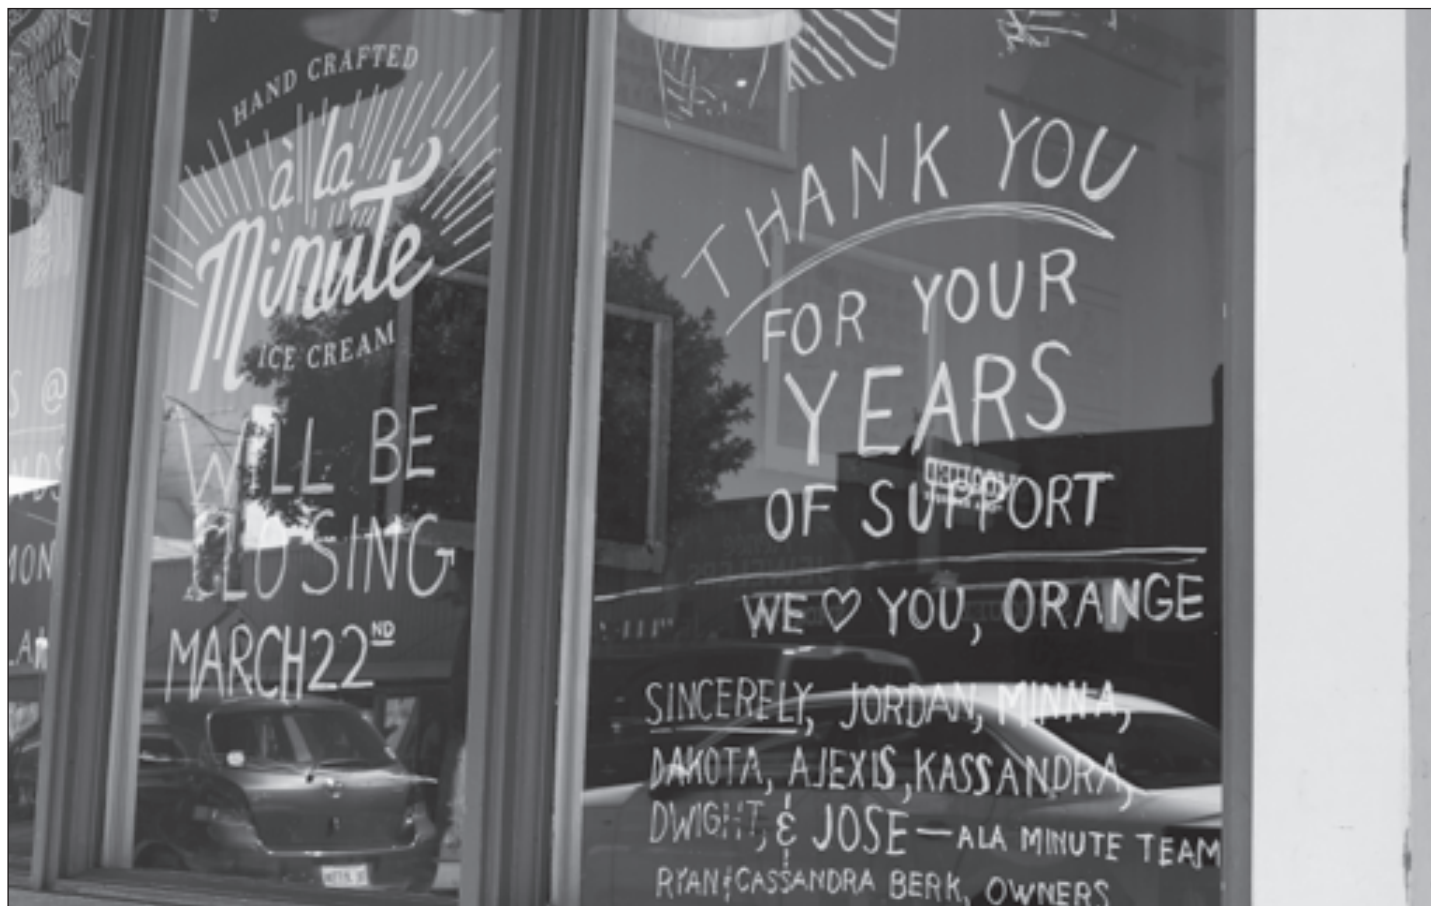 HAND CRAFTED
à la
Minute
ICE CREAM
WILL BE
CLOSING
MARCH 22ND
THANK YOU
FOR YOUR
YEARS
OF SUPPORT
WE ♡ YOU, ORANGE
SINCERELY, JORDAN, MINNA,
DAKOTA, ALEXIS, KASSANDRA,
DWIGHT, & JOSE — ALA MINUTE TEAM
RYAN & CASSANDRA BERK, OWNERS